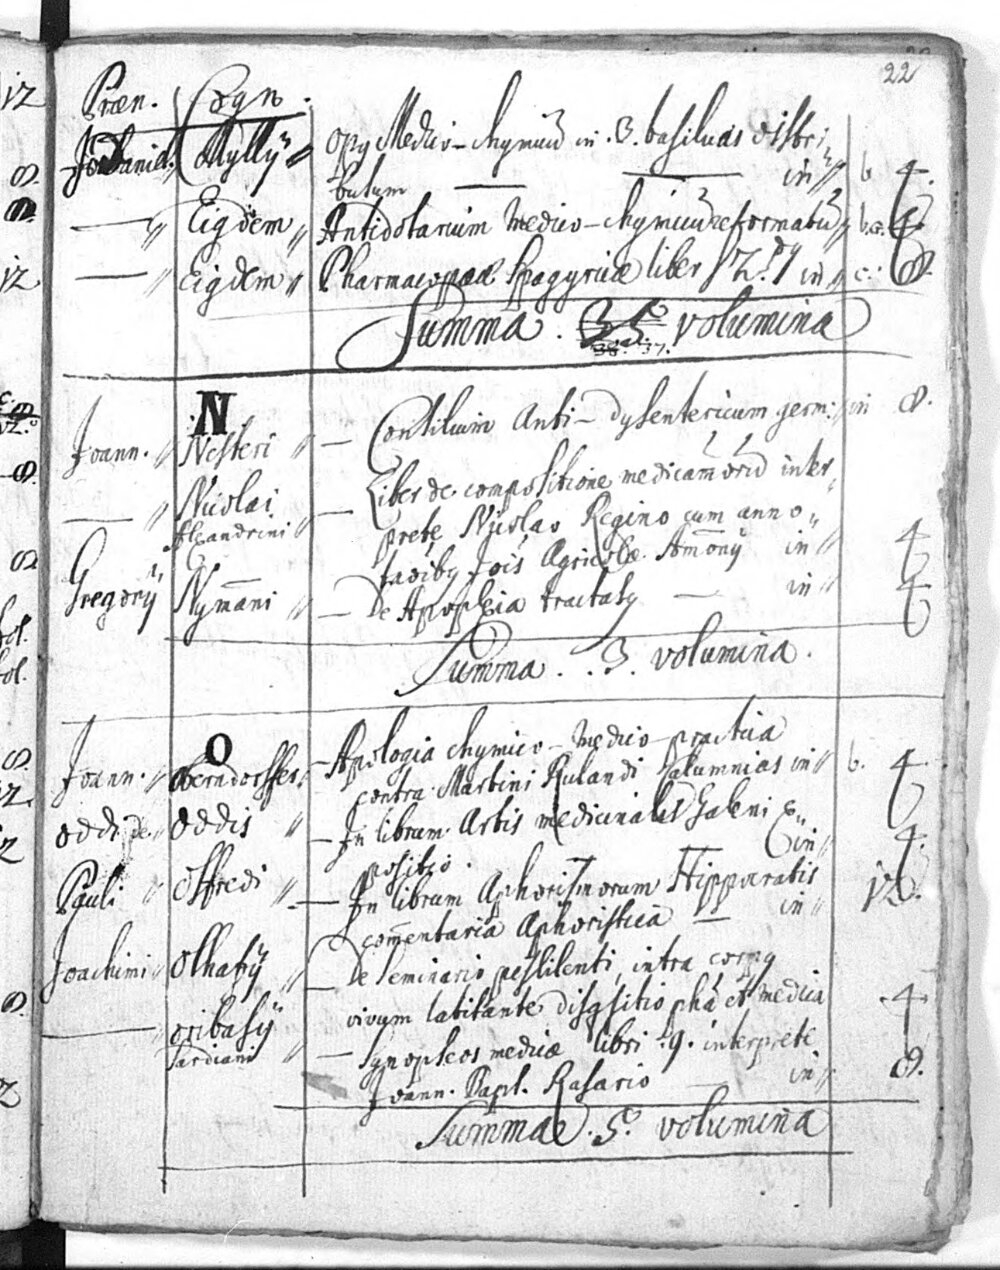 22
Præn. Cogn.
Joh Daniel. Mylÿ opq Medico-chymicũ in .3. basilicas distri„
butum in b. 4.
Eiqdem Antidotarium Medico-chymicũ reformatũ b.c. 4.
Eiqdem Pharmacopææ spagyricæ liber in c. 8.
Summa . 35 volumina
38. 37.
N
Joann. Nesteri Consilium Anti-dysentericum germ: in 8.
Nicolai Liber de compositione medicam̃orũ inter„
Alexandrini prete Nicolao Regino cum anno„
taõibq Jois Agricolæ Am̃onÿ in 4
Gregorÿ Nym̃ani De Apoplexia tractatq in 4
Summa . . 3. volumina .
O
Joann. Oberndorffer. Apologia chymico-medico-practica
contra Martini Rulandi Calumnias in b. 4
Oddi de Oddis In librum Artis medicinalis Galeni Ex„
positio. in 4.
Pauli Offredi In librum Aphorismorum Hippocratis in 12.
com̃entaria Aphoristica
Joachimi Olhafÿ De seminario pestilenti, intra corpq
vivum latitante disqsitio phã et medica 4
Oribasÿ Synopseos medicæ libri .9. interprete
Sardiani Joann. Bapt. Rasario in 8.
Summa . 5. volumina